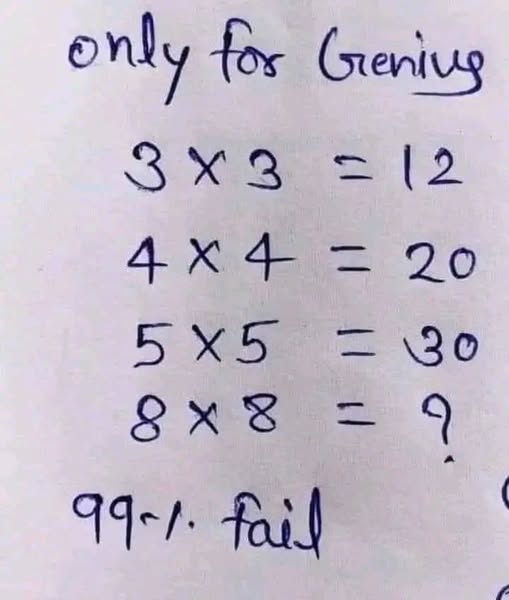 only for Genius
3 × 3 = 12
4 × 4 = 20
5 × 5 = 30
8 × 8 = ?
99-/. fail